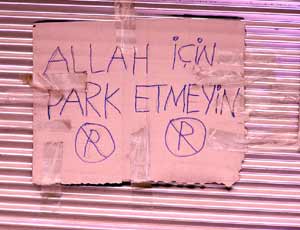 ALLAH İÇİN
PARK ETMEYİN
R R